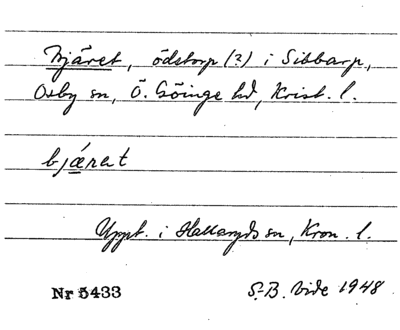 Bjäret, ödetorp (?) i Sibbarp,
Osby sn, Ö. Göinge hd, Krist. l.
bjæret
Uppt. i Hallaryds sn, Kron. l.
Nr 5433 S-B. Vide 1948